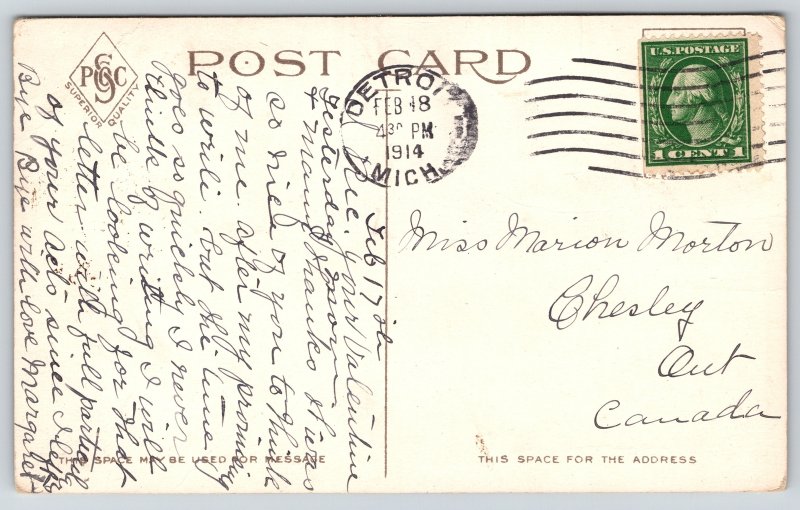 POST CARD
PCSO
SUPERIOR QUALITY
DETROIT
FEB 18
4 30 PM
1914
MICH.
U.S. POSTAGE
1 CENT 1
Feb 17th
Rec. your Valentine
yesterday morn.
& many thanks it was
so nice of you to think
of me. after my promising
to write. but the time
goes so quickly I never
think of writing I will
be looking for that
letter with full particul
of your acts since I left
Bye Bye with love Margaret
Miss Marion Morton
Chesley
Ont
Canada
THIS SPACE MAY BE USED FOR MESSAGE
THIS SPACE FOR THE ADDRESS